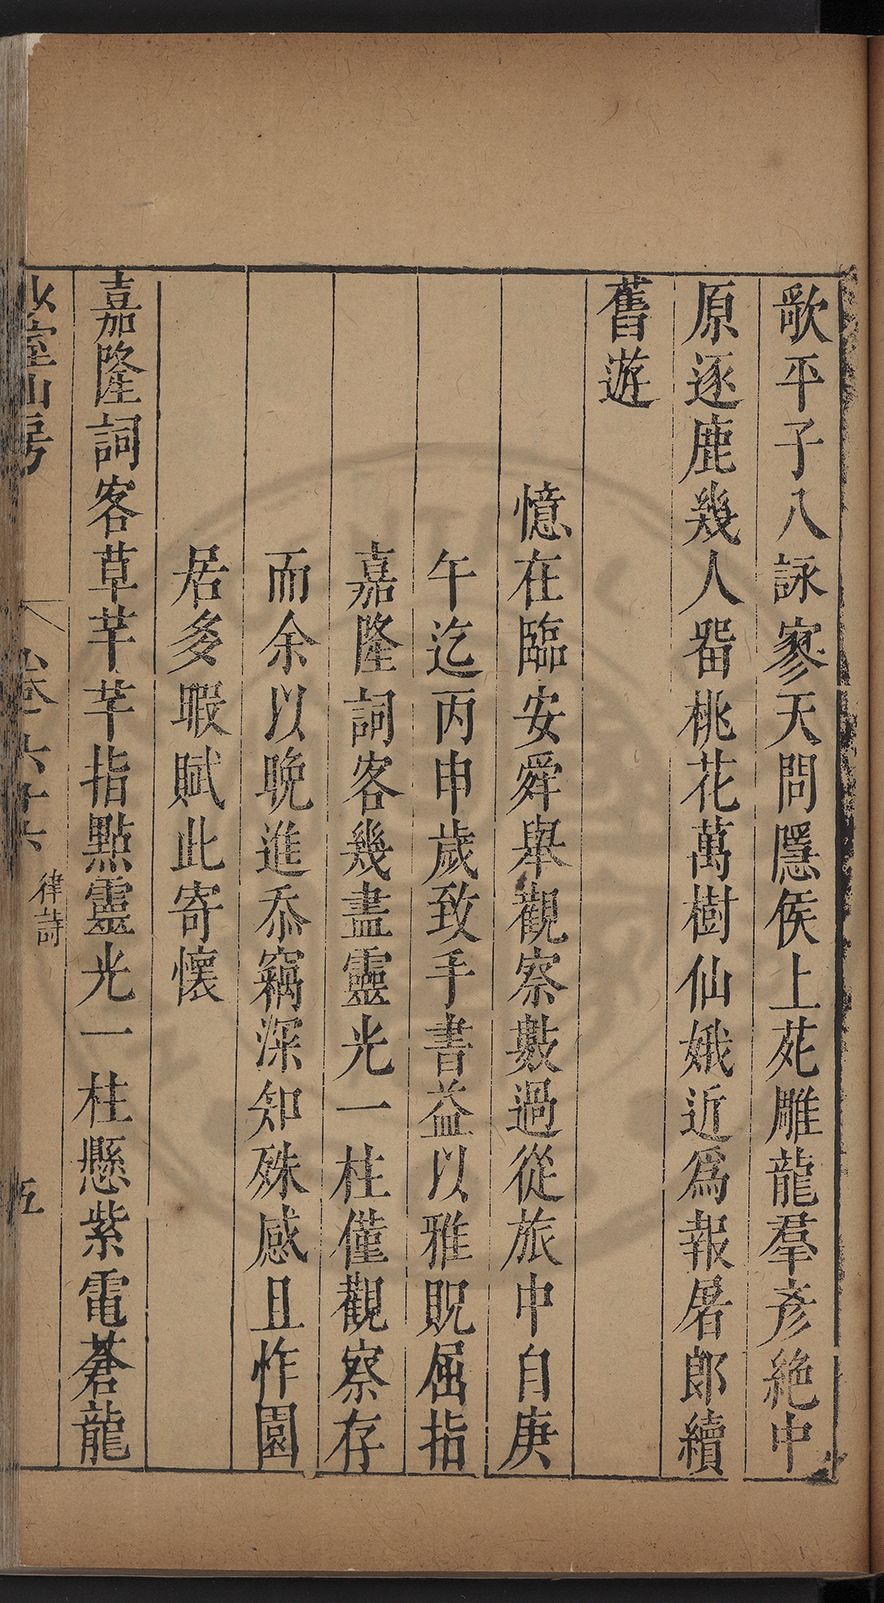 歌平子八詠寥天問隱侯上苑雕龍羣彥絶中
原逐鹿幾人畱桃花萬樹仙娥近爲報屠郎續
舊遊
憶在臨安舜舉觀察數過從旅中自庚
午迄丙申歲致手書益以雅貺屈指
嘉隆詞客幾盡靈光一柱僅觀察存
而余以晩進忝竊深知殊感且怍園
居多暇賦此寄懷
嘉隆詞客草芊芊指點靈光一柱懸紫電蒼龍
室山房
卷六十六
律詩
五